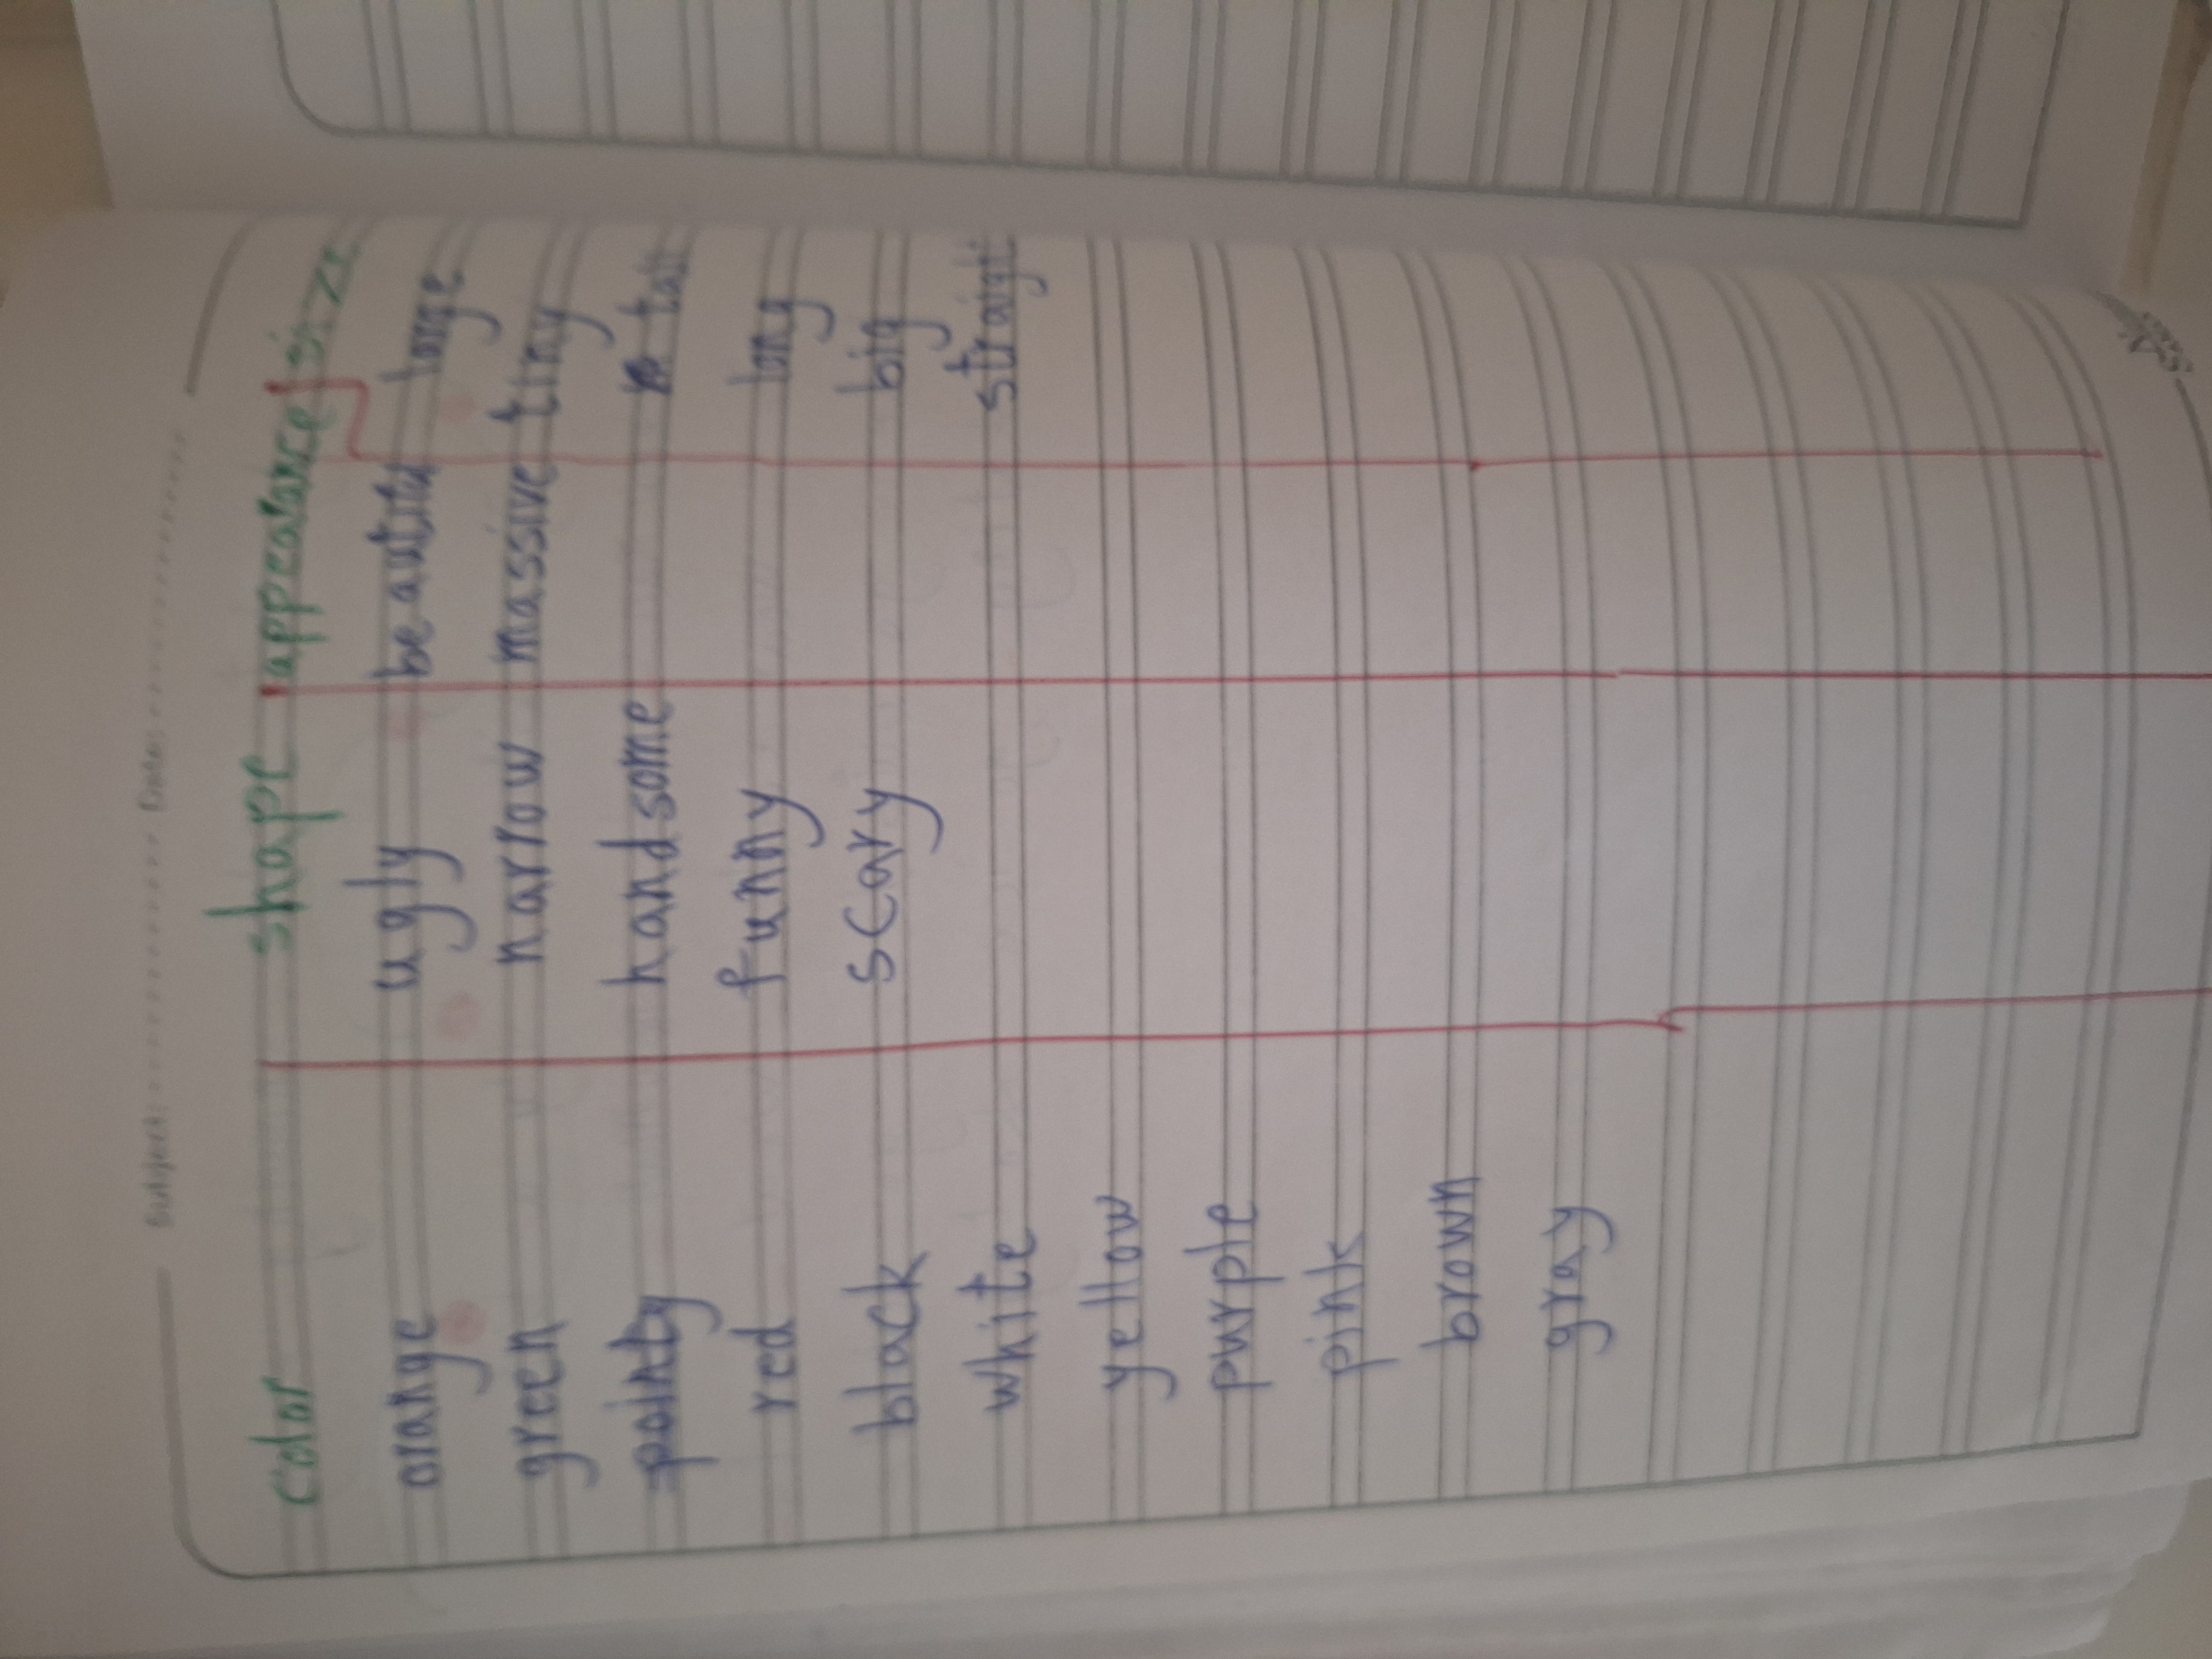 Subject: Date:
color shape appearance size
orange ugly beautiful large
green narrow massive tiny
pointy handsome tall
red funny long
black scary big
white straight
yellow
purple
pink
brown
gray